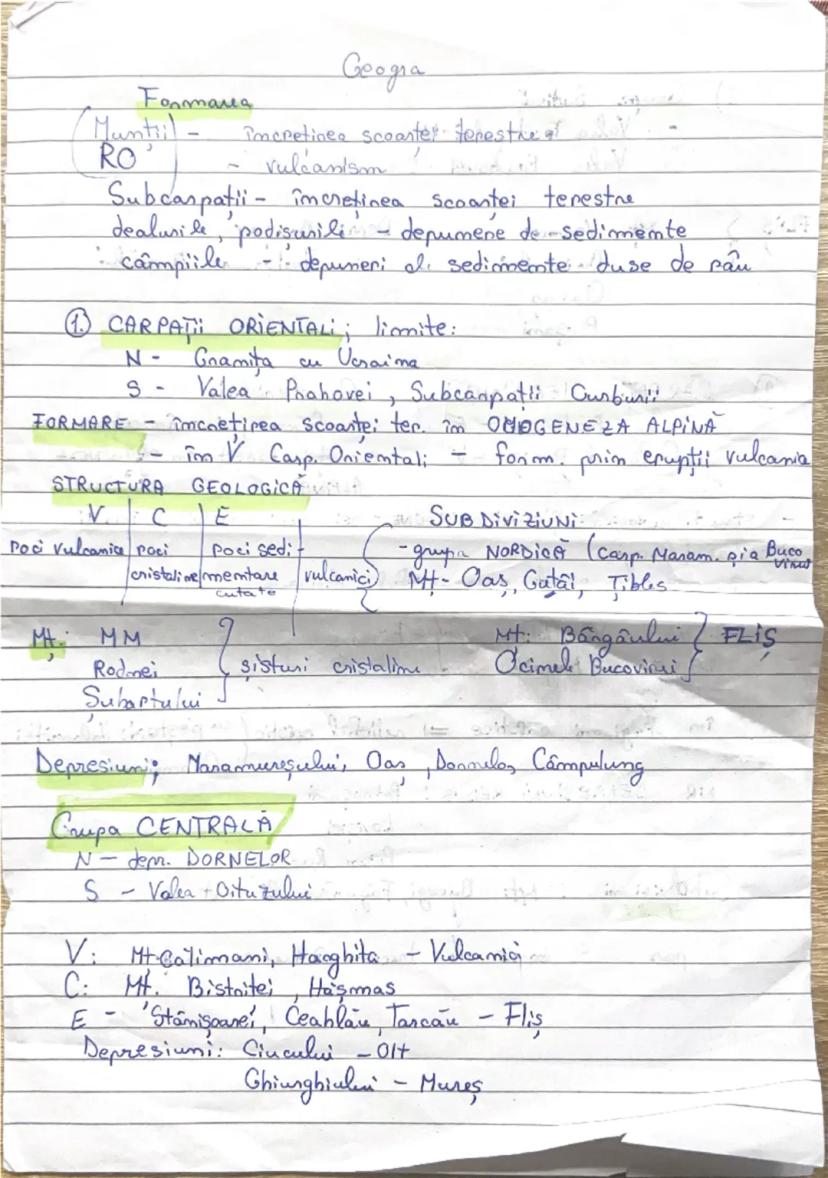 Geogra
Formarea
Munții - încrețirea scoarței terestre
RO - vulcanism
Subcarpații - încrețirea scoarței terestre
dealurile, podișurile - depunere de sedimente
câmpiile - depuneri al sedimente duse de râu
1. CARPAȚII ORIENTALI; limite:
N - Granița cu Ucraina
S - Valea Prahovei, Subcarpații Curburii
FORMARE - încrețirea scoarței ter. în OROGENEZA ALPINĂ
- în V Carp. Orientali - form. prin erupții vulcanice
STRUCTURA GEOLOGICĂ
V C E SUBDIVIZIUNI
roci vulcanice roci roci sedi - grupa NORDICĂ (Carp. Maram. și a Bucovinei
cristaline mentare vulcanici Mț - Oaș, Gutâi, Țibleș
cutate
Mț: MM Mț: Bârgăului FLIȘ
Rodnei șisturi cristaline Obcinele Bucovinei
Suhartului
Depresiuni; Maramureșului, Oaș, Dornelor, Câmpulung
Grupa CENTRALĂ
N - depr. DORNELOR
S - Valea Oituzului
V: Mț Călimani, Harghita - Vulcanici
C: Mț. Bistriței, Hășmaș
E - Stânișoarei, Ceahlău, Tarcău - Fliș
Depresiuni: Ciucului - Olt
Ghiurghiului - Mureș